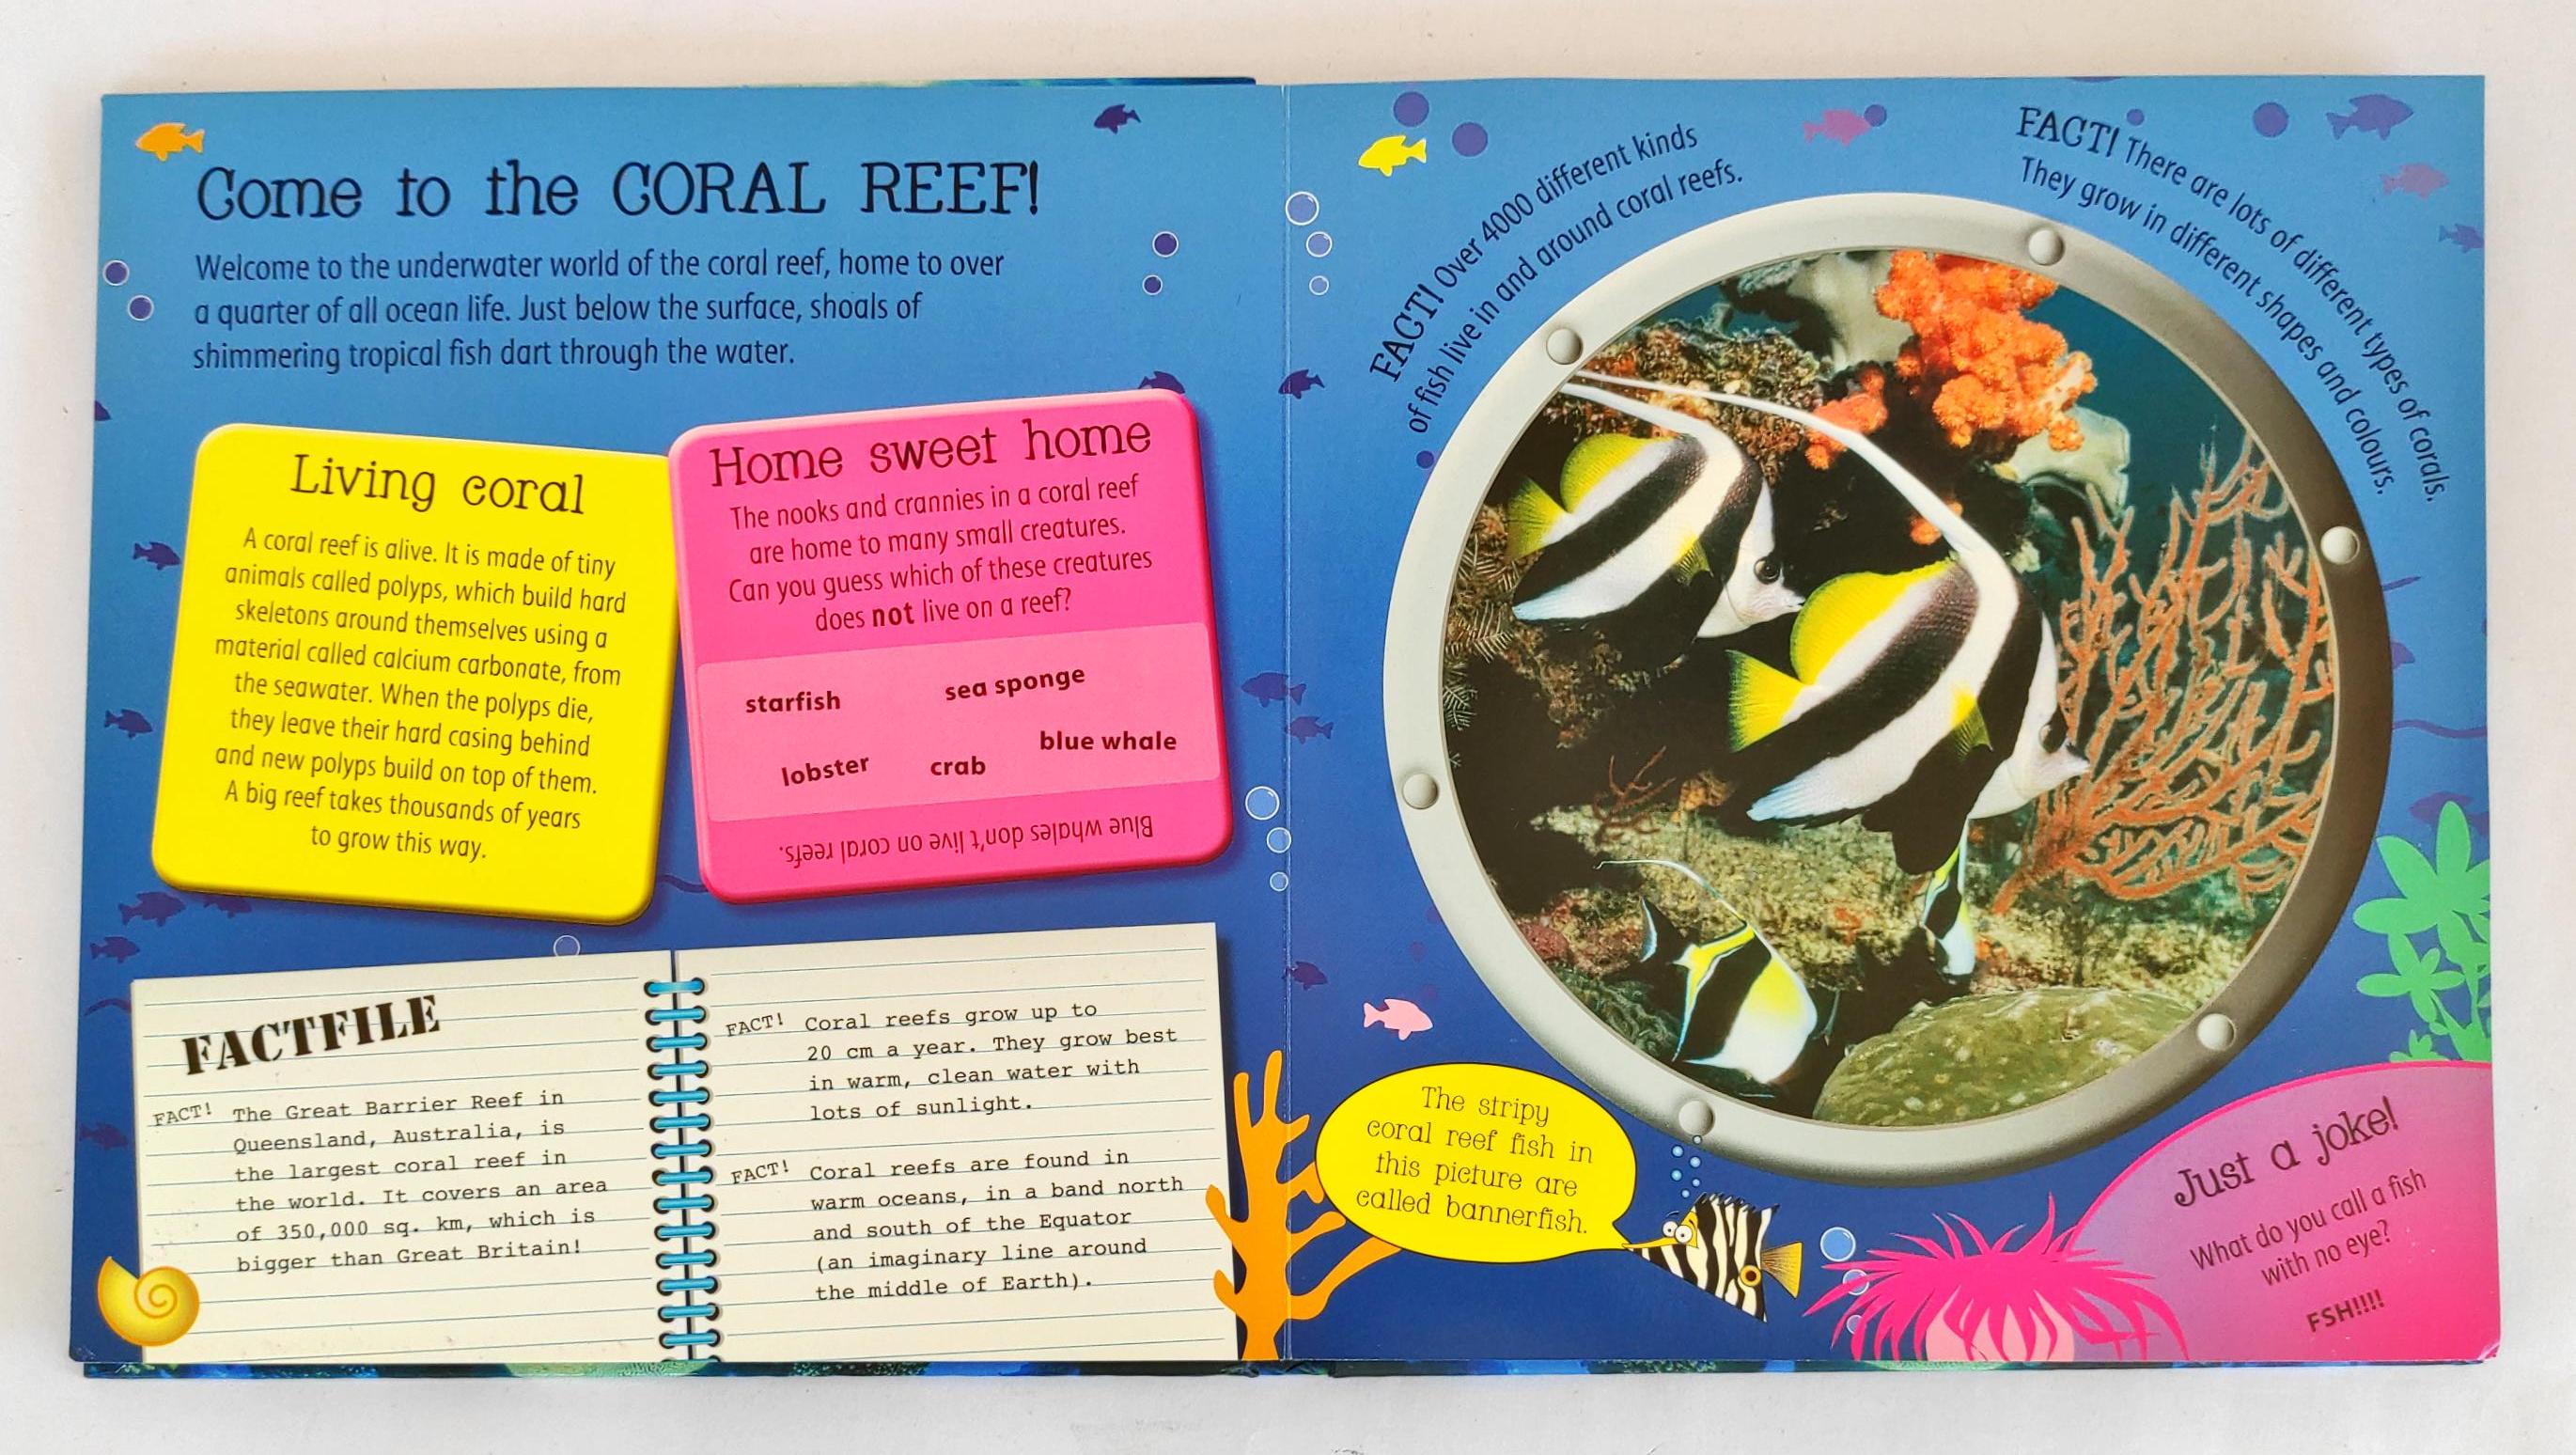 Come to the CORAL REEF!
Welcome to the underwater world of the coral reef, home to over
a quarter of all ocean life. Just below the surface, shoals of
shimmering tropical fish dart through the water.
Living coral
A coral reef is alive. It is made of tiny
animals called polyps, which build hard
skeletons around themselves using a
material called calcium carbonate, from
the seawater. When the polyps die,
they leave their hard casing behind
and new polyps build on top of them.
A big reef takes thousands of years
to grow this way.
Home sweet home
The nooks and crannies in a coral reef
are home to many small creatures.
Can you guess which of these creatures
does not live on a reef?
starfish
sea sponge
blue whale
lobster
crab
Blue whales don't live on coral reefs.
FACTFILE
FACT! The Great Barrier Reef in
Queensland, Australia, is
the largest coral reef in
the world. It covers an area
of 350,000 sq. km, which is
bigger than Great Britain!
FACT! Coral reefs grow up to
20 cm a year. They grow best
in warm, clean water with
lots of sunlight.
FACT! Coral reefs are found in
warm oceans, in a band north
and south of the Equator
(an imaginary line around
the middle of Earth).
FACT! Over 4000 different kinds
of fish live in and around coral reefs.
FACT! There are lots of different types of corals.
They grow in different shapes and colours.
The stripy
coral reef fish in
this picture are
called bannerfish.
Just a joke!
What do you call a fish
with no eye?
FSH!!!!